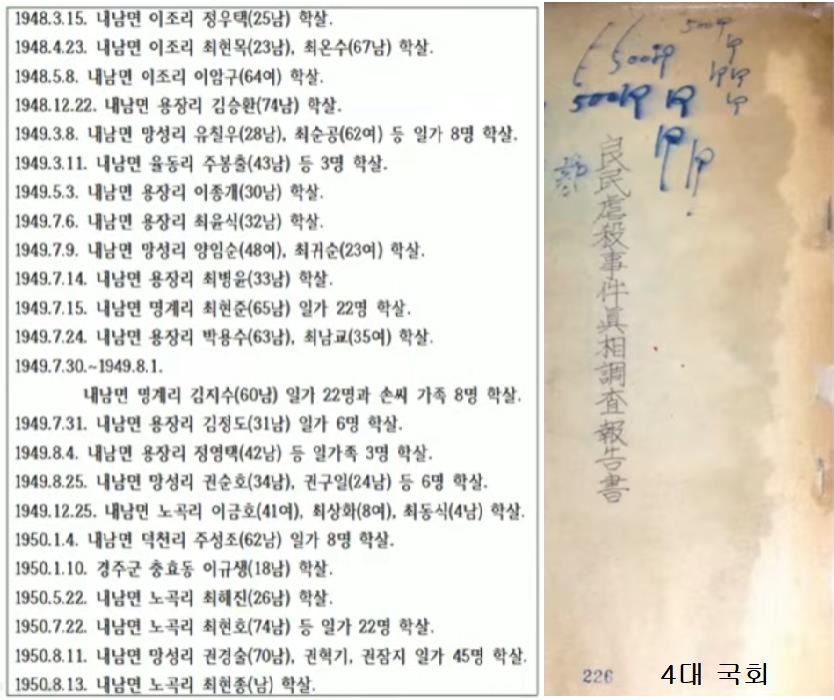 1948.3.15. 내남면 이조리 정우택(25남) 학살.
1948.4.23. 내남면 이조리 최현목(23남), 최온수(67남) 학살.
1948.5.8. 내남면 이조리 이암구(64여) 학살.
1948.12.22. 내남면 용장리 김승환(74남) 학살.
1949.3.8. 내남면 망성리 유칠우(28남), 최순공(62여) 등 일가 8명 학살.
1949.3.11. 내남면 율동리 주봉출(43남) 등 3명 학살.
1949.5.3. 내남면 용장리 이종개(30남) 학살.
1949.7.6. 내남면 용장리 최윤식(32남) 학살.
1949.7.9. 내남면 망성리 양임순(48여), 최귀순(23여) 학살.
1949.7.14. 내남면 용장리 최병윤(33남) 학살.
1949.7.15. 내남면 명계리 최현준(65남) 일가 22명 학살.
1949.7.24. 내남면 용장리 박용수(63남), 최남교(35여) 학살.
1949.7.30.~1949.8.1.
내남면 명계리 김지수(60남) 일가 22명과 손씨 가족 8명 학살.
1949.7.31. 내남면 용장리 김정도(31남) 일가 6명 학살.
1949.8.4. 내남면 용장리 정영택(42남) 등 일가족 3명 학살.
1949.8.25. 내남면 망성리 권순호(34남), 권구일(24남) 등 6명 학살.
1949.12.25. 내남면 노곡리 이금호(41여), 최상화(8여), 최동식(4남) 학살.
1950.1.4. 내남면 덕천리 주성조(62남) 일가 8명 학살.
1950.1.10. 경주군 충효동 이규생(18남) 학살.
1950.5.22. 내남면 노곡리 최해진(26남) 학살.
1950.7.22. 내남면 노곡리 최현호(74남) 등 일가 22명 학살.
1950.8.11. 내남면 망성리 권경술(70남), 권혁기, 권잠지 일가 45명 학살.
1950.8.13. 내남면 노곡리 최현종(남) 학살.
良民虐殺事件眞相調査報告書
226
4대 국회